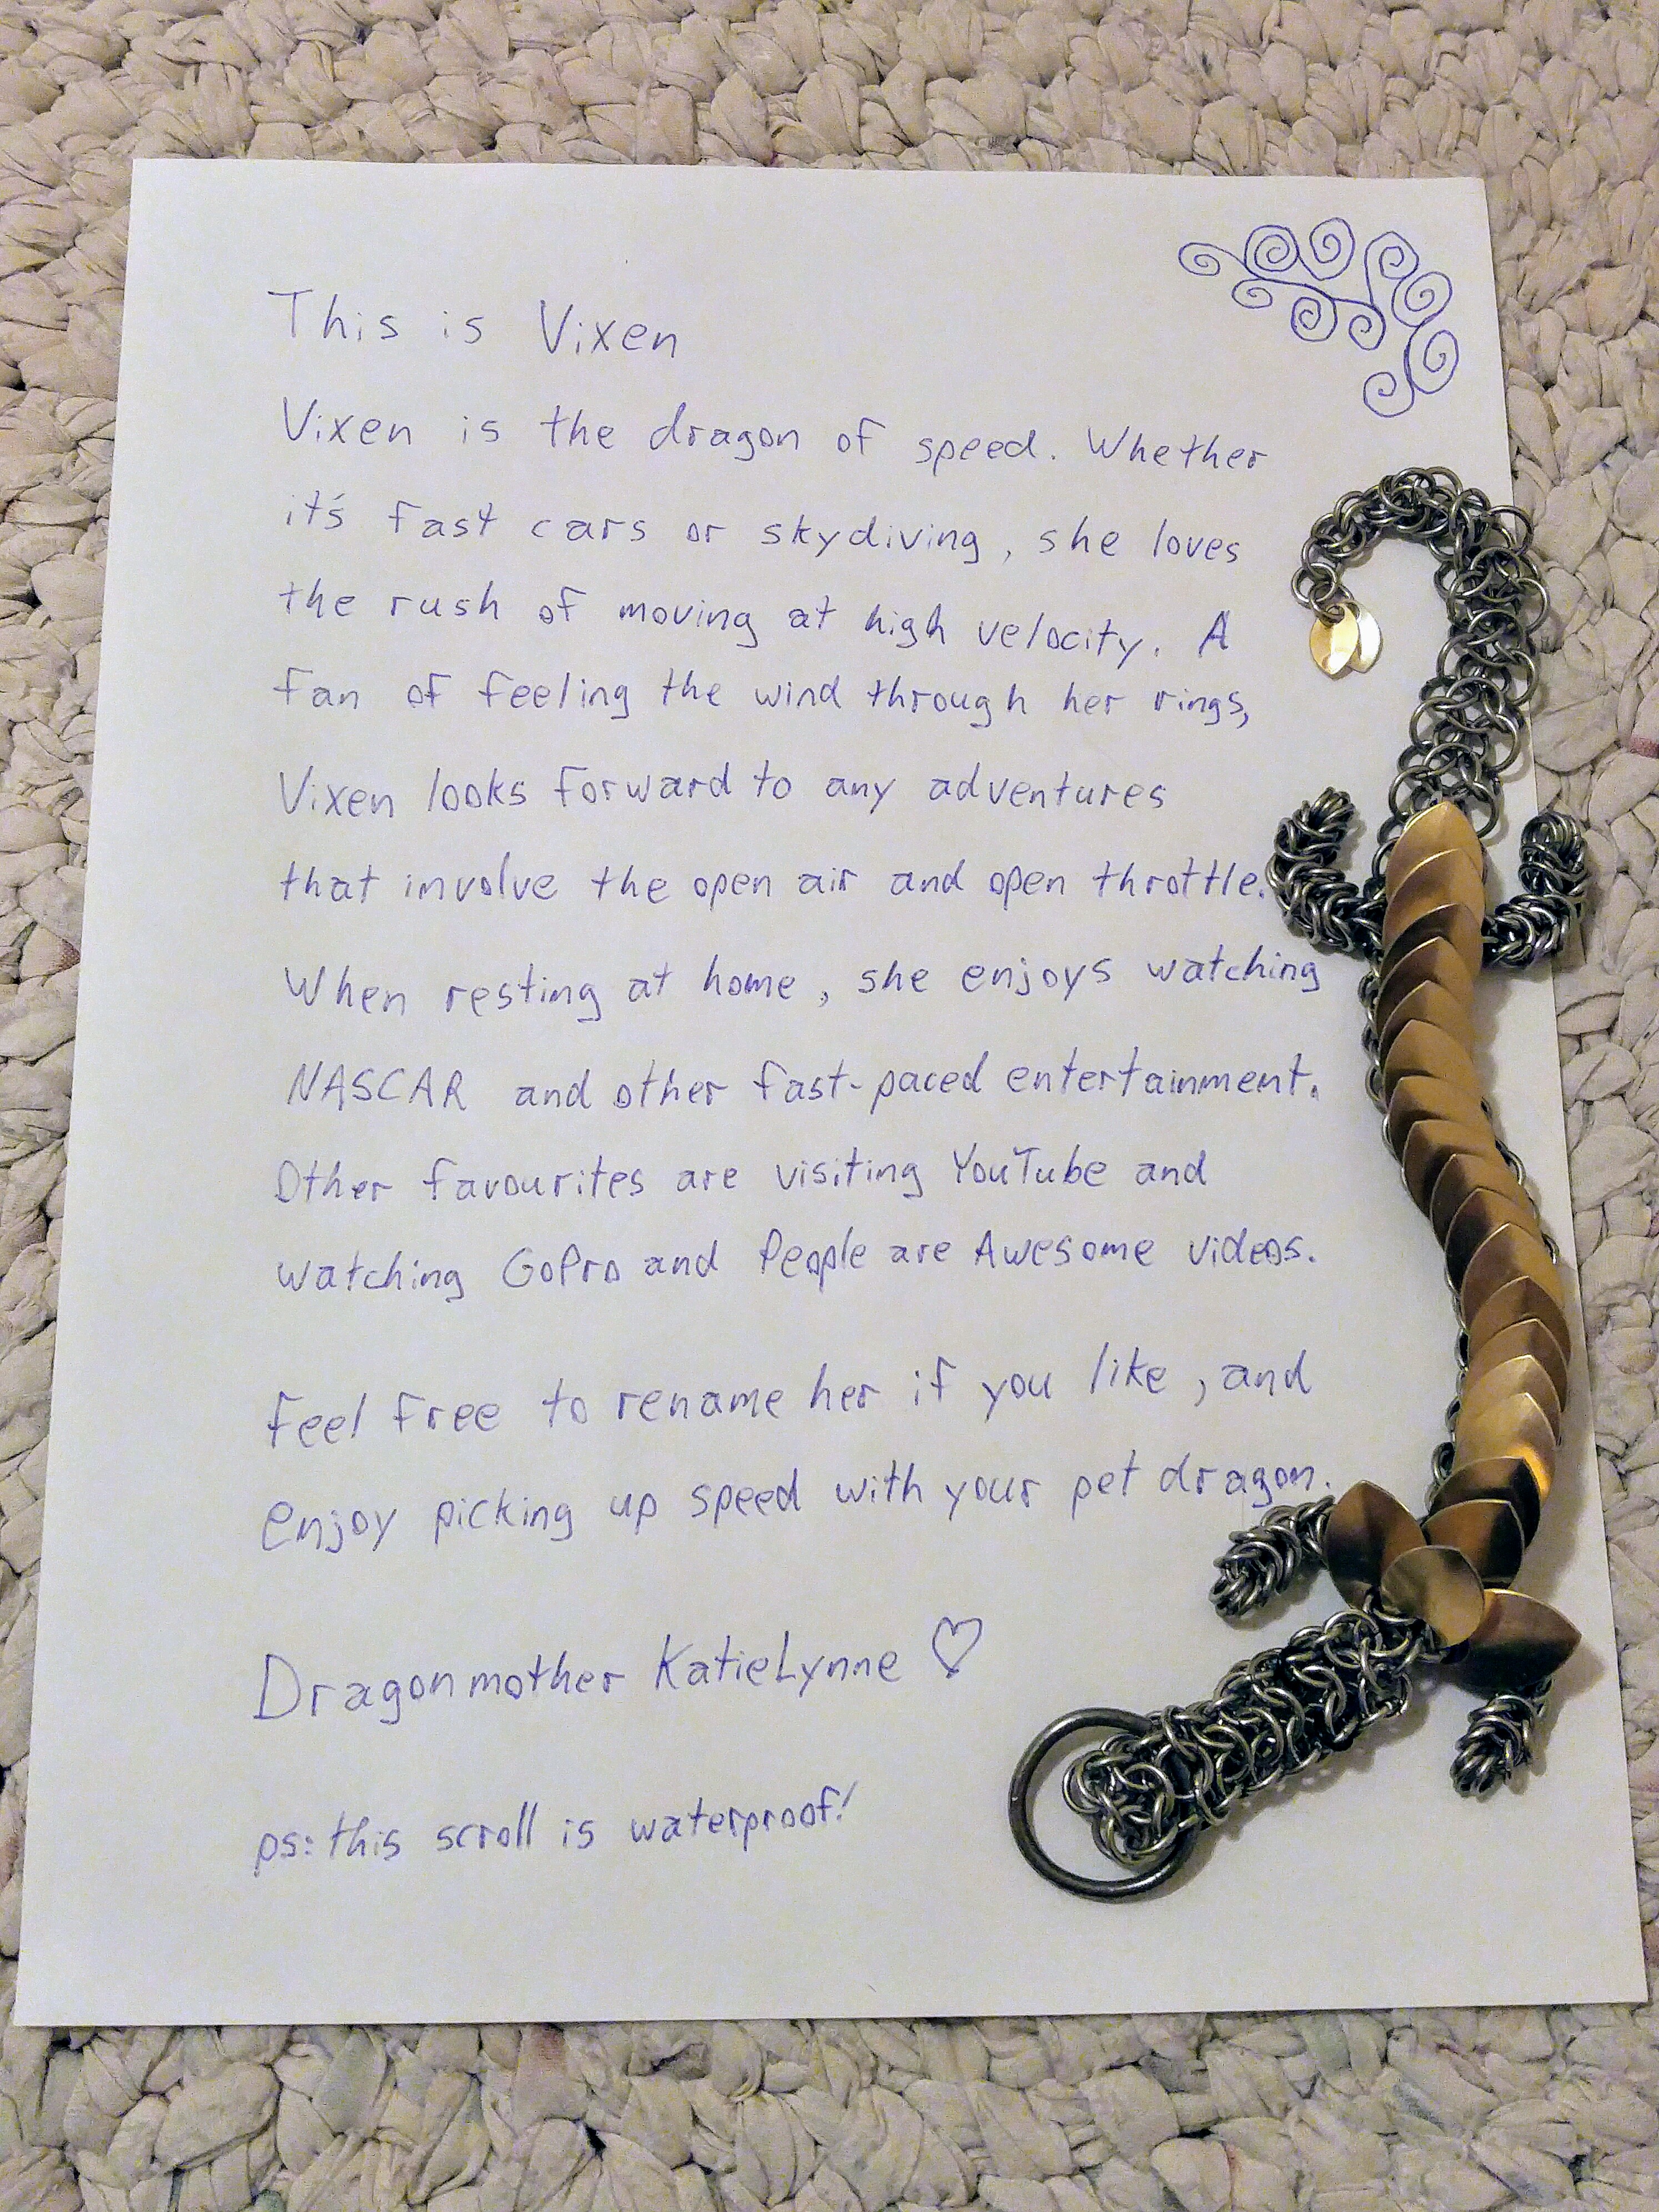 This is Vixen
Vixen is the dragon of speed. Whether
it's fast cars or skydiving, she loves
the rush of moving at high velocity. A
fan of feeling the wind through her rings,
Vixen looks forward to any adventures
that involve the open air and open throttle.
When resting at home, she enjoys watching
NASCAR and other fast-paced entertainment.
Other favourites are visiting YouTube and
watching GoPro and People are Awesome videos.
Feel free to rename her if you like, and
enjoy picking up speed with your pet dragon.
Dragonmother KatieLynne ♡
ps: this scroll is waterproof!